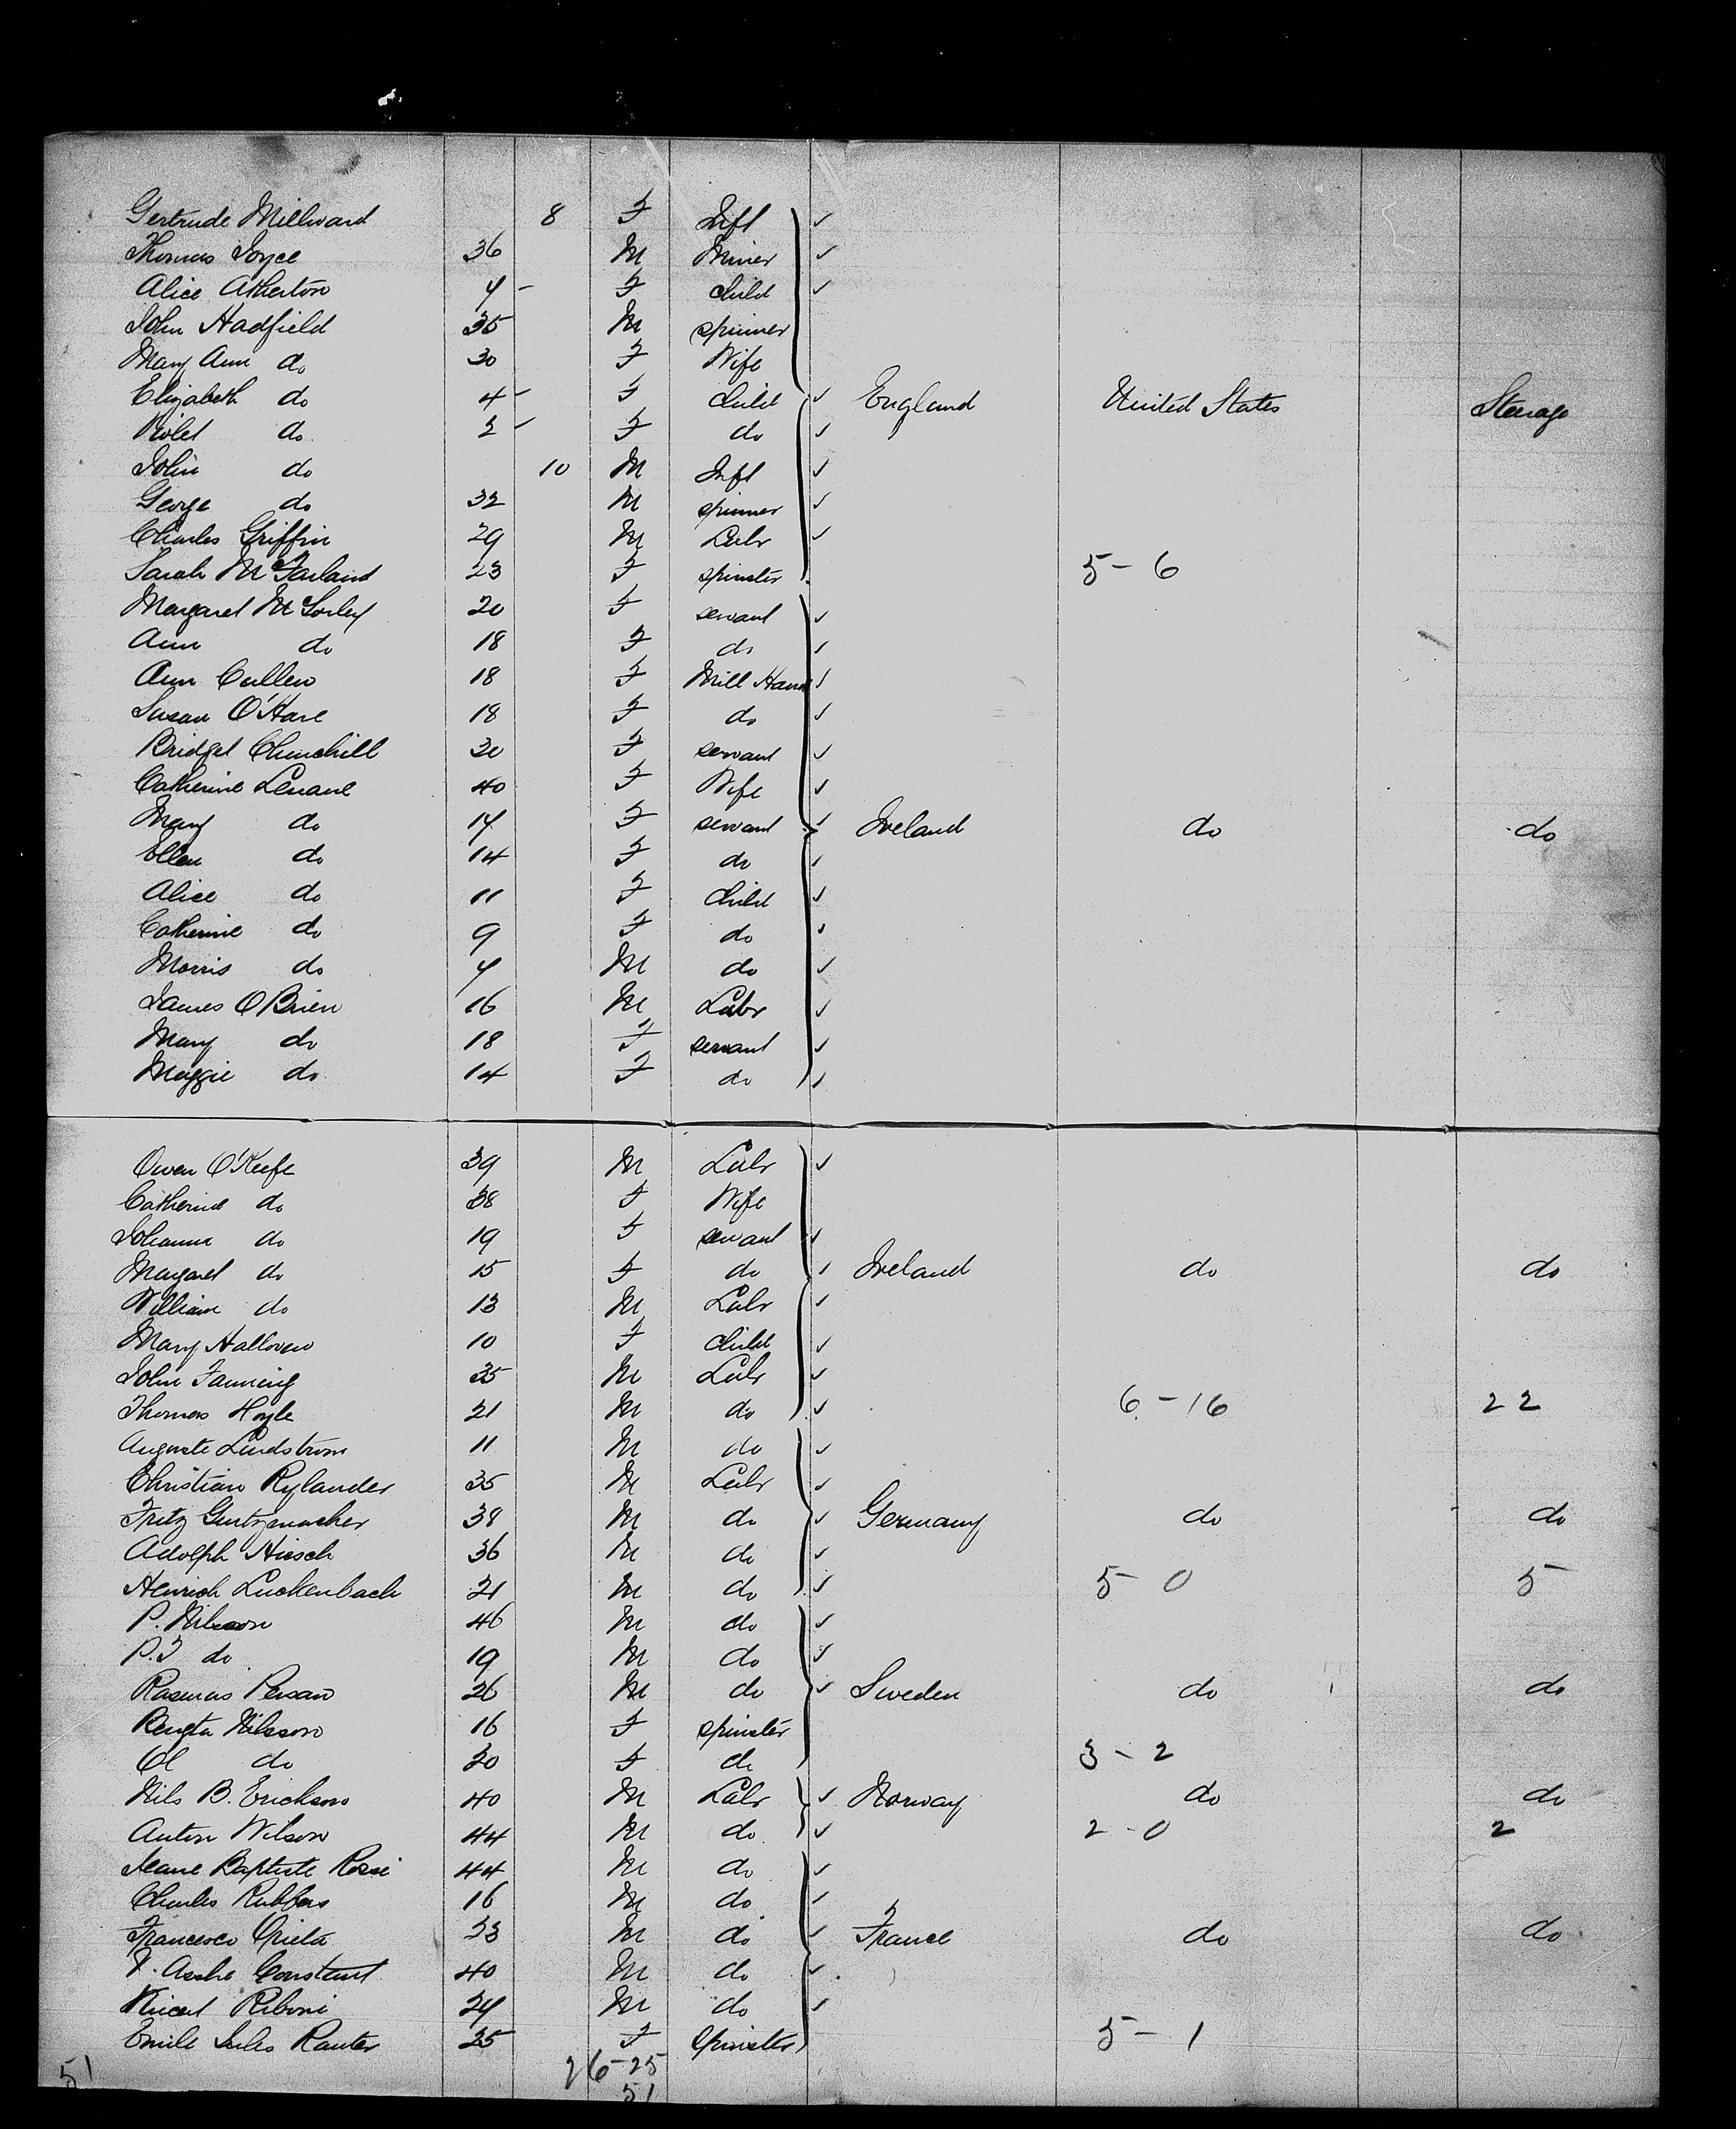 Gertrude Millward 8 F Inft
Thomas Joyce 36 M Miner
Alice Atherton 4 - F child
John Hadfield 35 M spinner
Mary Ann do 30 F Wife
Elizabeth do 4 - F child England United States Steerage
Violet do 2 - F do
John do 10 M Inft
George do 32 M spinner
Charles Griffin 29 M Labr
Sarah McFarland 23 F spinster 5 - 6
Margaret McSorley 20 F servant
Ann do 18 F do
Ann Cullen 18 F Mill Hand
Susan O'Hare 18 F do
Bridget Churchill 30 F servant
Catherine Lenane 40 F Wife
Mary do 14 F servant Ireland do do
Ellen do 14 F do
Alice do 11 F child
Catherine do 9 F do
Morris do 4 M do
James O'Brien 16 M Labr
Mary do 18 F servant
Maggie do 14 F do
Owen O'Keefe 39 M Labr
Catherine do 38 F Wife
Johanna do 19 F servant
Margaret do 15 F do Ireland do do
William do 13 M Labr
Mary Halloran 10 F child
John Fanning 25 M Labr
Thomas Hoyle 21 M do 6 - 16 22
Auguste Lindstrom 11 M do
Christian Rylander 35 M Labr
Fritz Gurtzmacher 38 M do Germany do do
Adolph Hirsch 36 M do
Henrich Luckenbach 21 M do 5 - 0 5
P. Nilsson 46 M do
P.J do 19 M do
Rasmus Persan 26 M do Sweden do do
Bengta Nilsson 16 F spinster
Ol do 20 F do 3 - 2
Nils B. Erickson 40 M Labr Norway do do
Anton Wilson 44 M do 2 - 0 2
Jeane Baptiste Rossi 44 M do
Charles Rubbers 16 M do
Francesco Oriela 33 M do France do do
Constant 40 M do
Riboni 24 M do
Emile Jules Rauter 25 F spinster 5 - 1
51 26-25
51